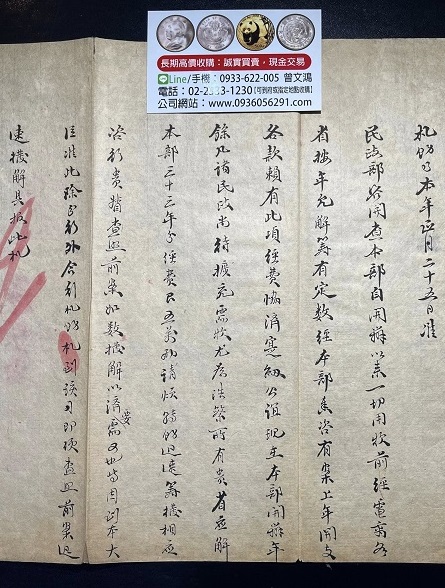 長期高價收購：誠實買賣，現金交易
Line/手機：0933-622-005 曾文鴻
電話：02-2 33-1230(可到府或指定地點收購)
公司網站：www.0936056291.com
札飭事本年正月二十五日准
民政部咨開查本部自開辦以來一切用款前經電商各
省按年允解籌有定數經本部奏咨有案上年開支
各款賴有此項經費協濟寔紉公誼現在本部開辦年
餘凡諸民政尚待擴充需款尤為浩繁所有貴省應解
本部三十三年分經費 五萬 請煩轉飭迅速籌撥相應
咨行貴督查照前案如數撥解以濟要需可也等因到本大
臣准此除分行外合行札飭札到該司即便查照前案迅
速撥解具报此札